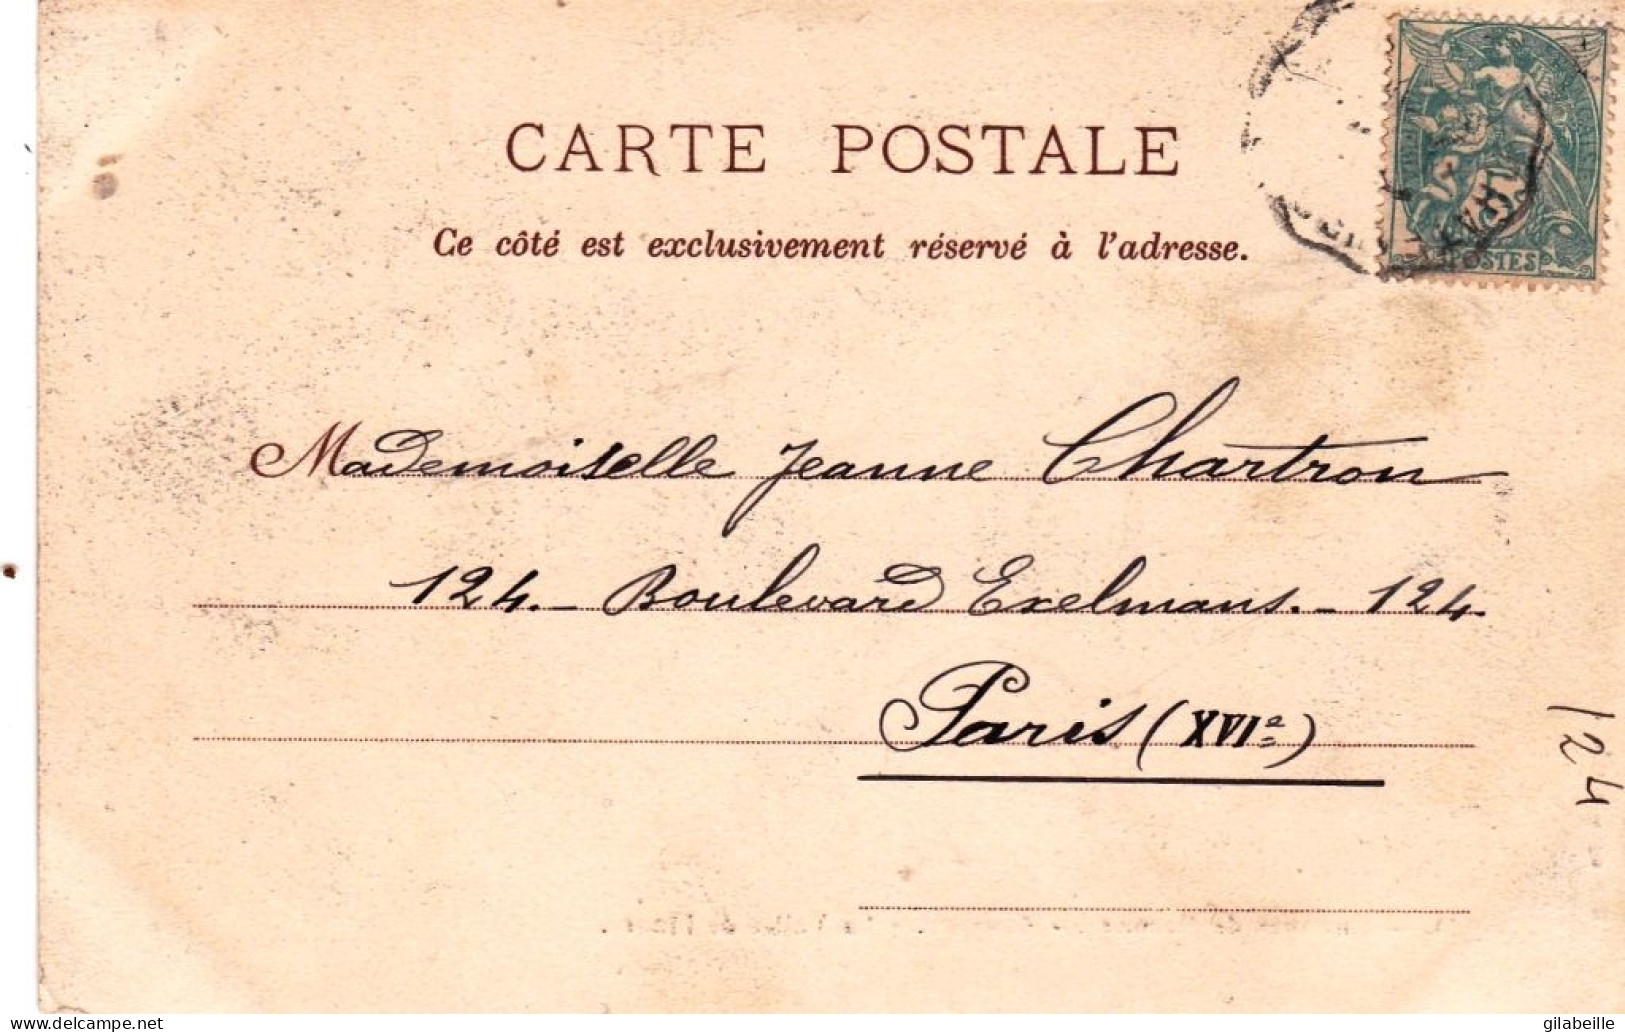 CARTE POSTALE
Ce côté est exclusivement réservé à l'adresse.
POSTES
Mademoiselle Jeanne Chartron
124. _ Boulevard Exelmans. _ 124.
Paris (XVIe)
124
www.delcampe.net
gilabeille